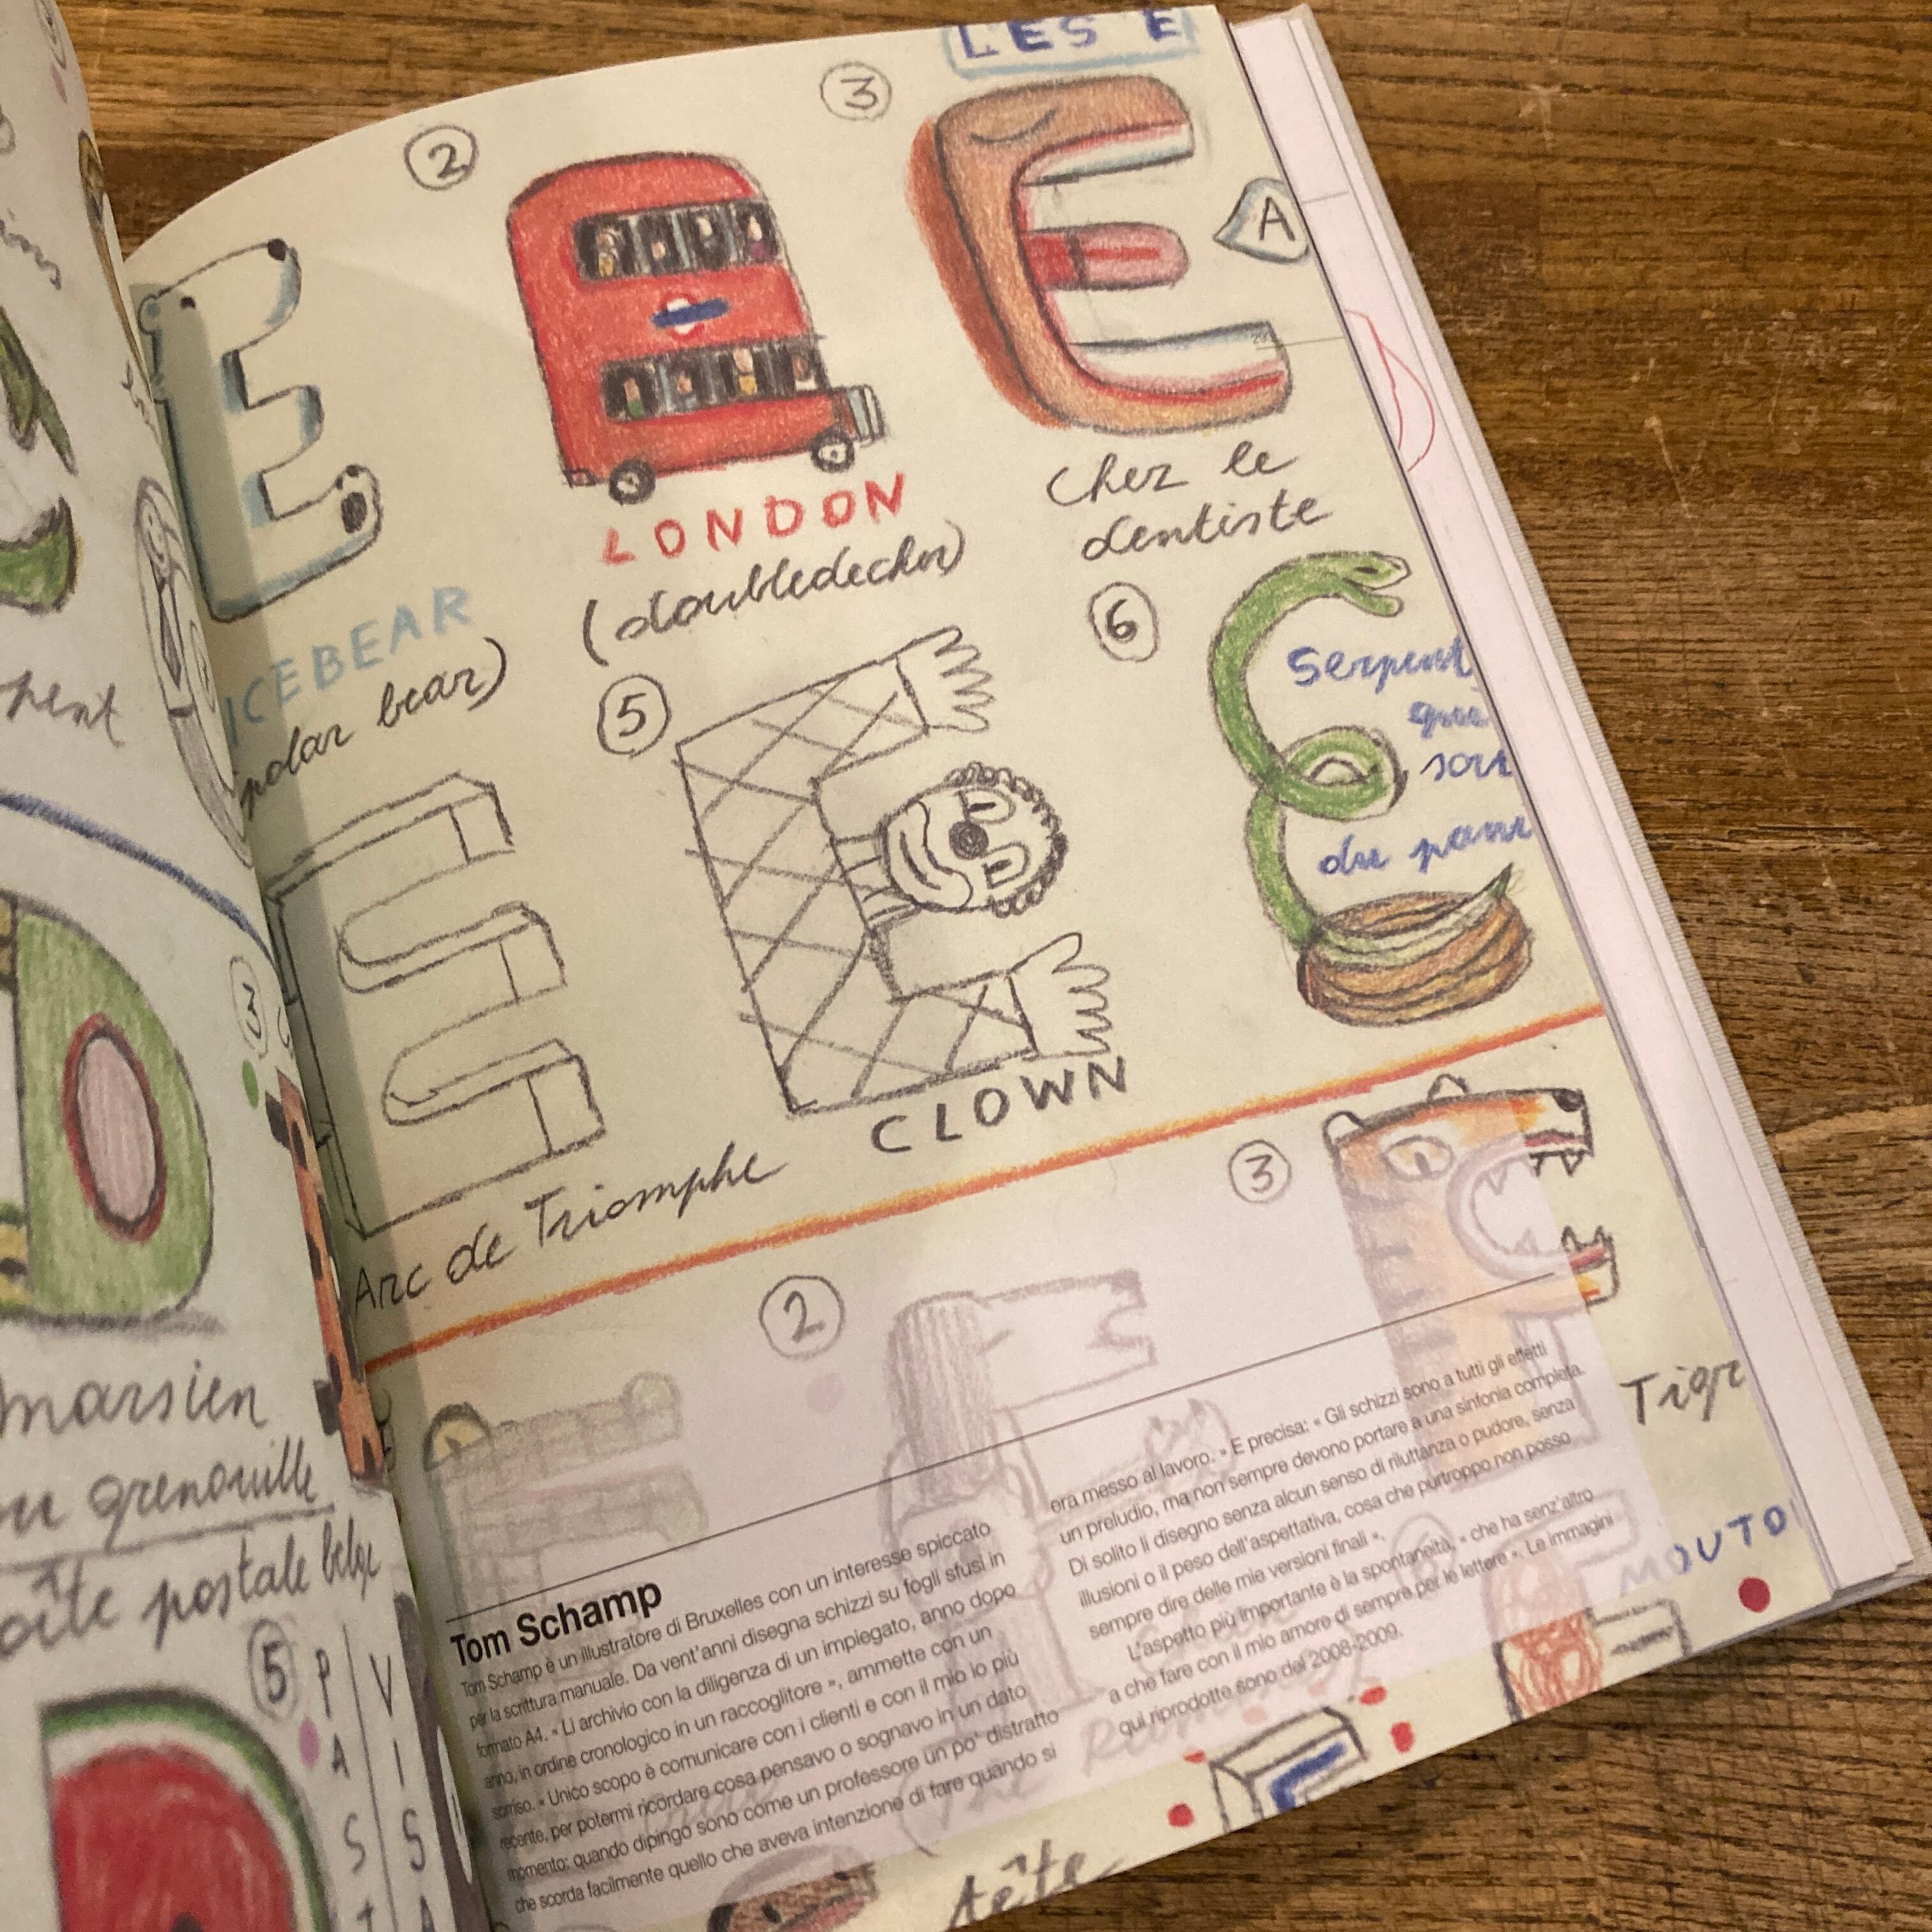 LES E
2
3
A
LONDON
(doubledecker)
Chez le
dentiste
ICEBEAR
polar bear)
5
6
Serpent
sort
du
CLOWN
Arc de Triomphe
3
2
Tigr
MOUTO
3
marsien
ou grenouille
postale belge
5
P
A
S
V
I
S
A
Tom Schamp
Tom Schamp è un illustratore di Bruxelles con un interesse spiccato
per la scrittura manuale. Da vent'anni disegna schizzi su fogli sfusi in
formato A4. « Li archivio con la diligenza di un impiegato, anno dopo
anno, in ordine cronologico in un raccoglitore », ammette con un
sorriso. « Unico scopo è comunicare con i clienti e con il mio io più
recente, per potermi ricordare cosa pensavo o sognavo in un dato
momento: quando dipingo sono come un professore un po' distratto
che scorda facilmente quello che aveva intenzione di fare quando si
era messo al lavoro. » E precisa: « Gli schizzi sono a tutti gli effetti
un preludio, ma non sempre devono portare a una sinfonia completa.
Di solito li disegno senza alcun senso di riluttanza o pudore, senza
illusioni o il peso dell'aspettativa, cosa che purtroppo non posso
sempre dire delle mie versioni finali ».
L'aspetto più importante è la spontaneità, « che ha senz'altro
a che fare con il mio amore di sempre per le lettere ». Le immagini
qui riprodotte sono del 2008-2009.
tête